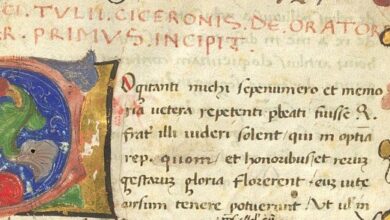 CI. TVLII. CICERONIS. DE. ORATOR
ER. PRIMVS. INCIPIT
Ogitanti michi sepenumero et memo
ria vetera repetenti pbeati fuisse
frat illi videri solent, qui in optĩa
rep. quom et honoribus et rerum
gestarum gloria florerent eum vite
cursum tenere potuerunt Vt